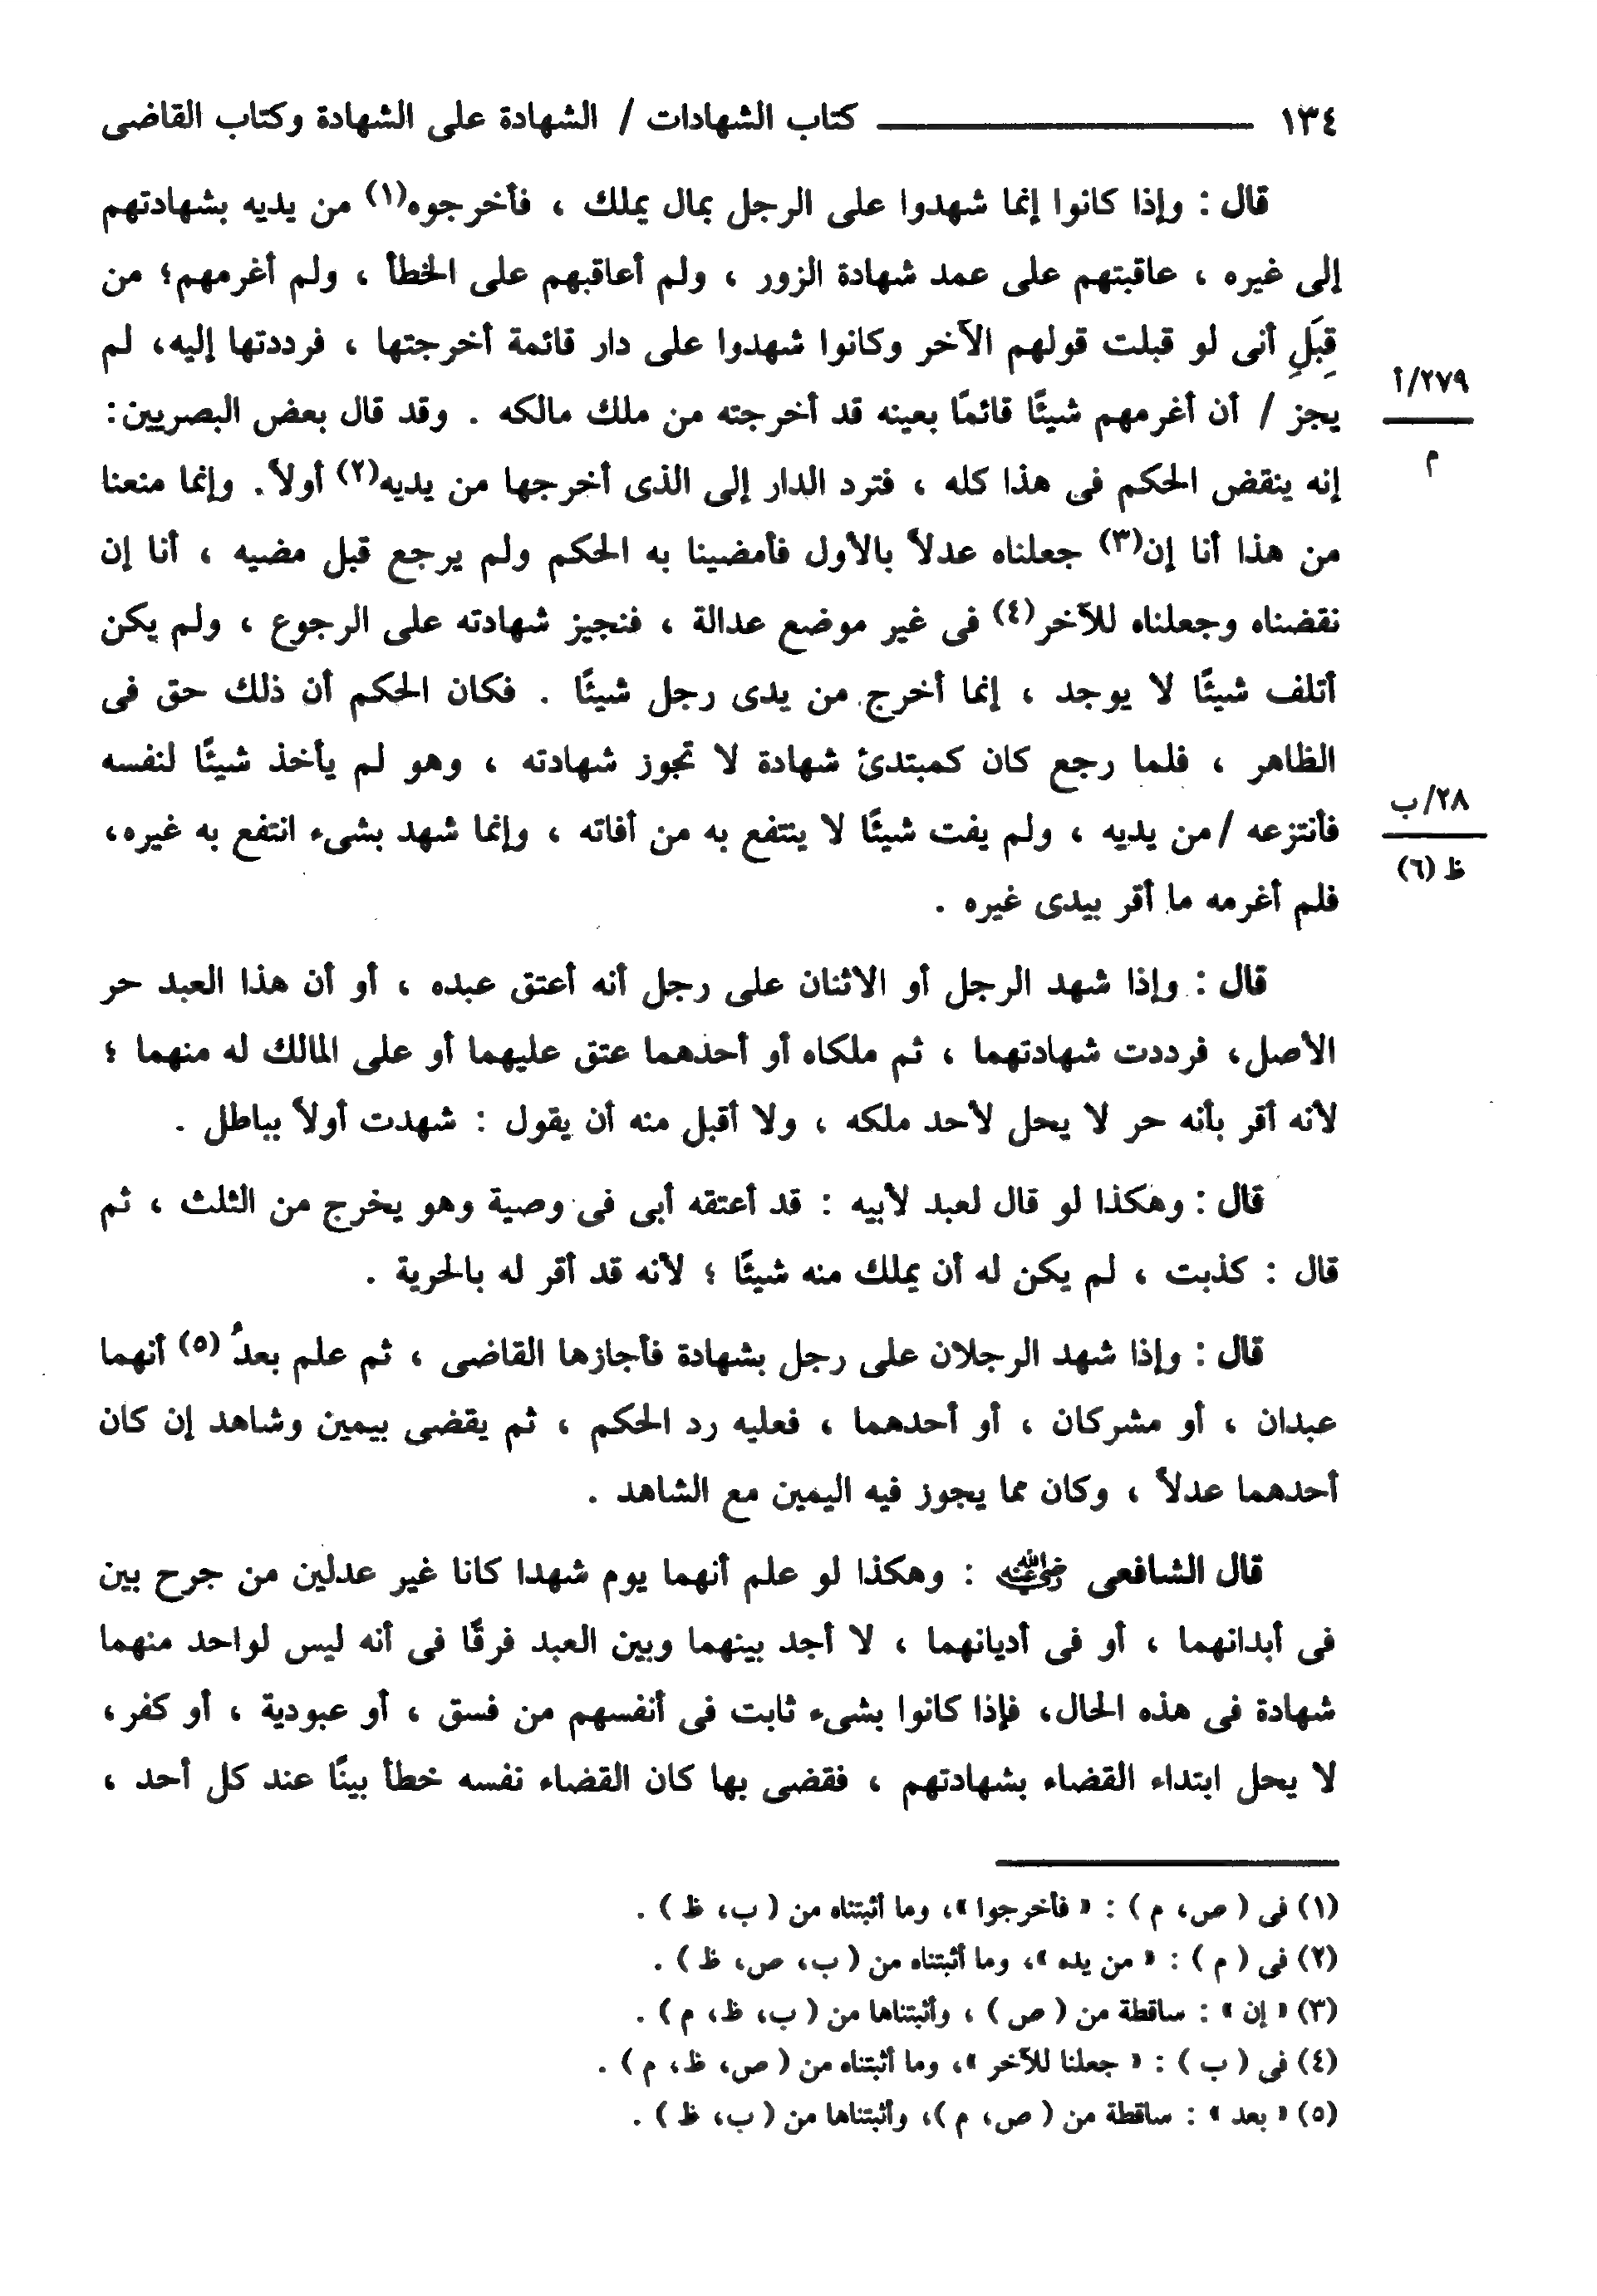 ١٣٤ كتاب الشهادات / الشهادة على الشهادة وكتاب القاضى
قال : وإذا كانوا إنما شهدوا على الرجل بمال يملك ، فأخرجوه(١) من يديه بشهادتهم
إلى غيره ، عاقبتهم على عمد شهادة الزور ، ولم أعاقبهم على الخطأ ، ولم أغرمهم؛ من
قِبَلِ أنى لو قبلت قولهم الآخر وكانوا شهدوا على دار قائمة أخرجتها ، فرددتها إليه، لم
٢٧٩/أ
يجز / أن أغرمهم شيئًا قائمًا بعينه قد أخرجته من ملك مالكه . وقد قال بعض البصريين:
م
إنه ينقض الحكم فى هذا كله ، فترد الدار إلى الذى أخرجها من يديه(٢) أولاً. وإنما منعنا
من هذا أنا إن(٣) جعلناه عدلاً بالأول فأمضينا به الحكم ولم يرجع قبل مضيه ، أنا إن
نقضناه وجعلناه للآخر(٤) فى غير موضع عدالة ، فنجيز شهادته على الرجوع ، ولم يكن
أتلف شيئًا لا يوجد ، إنما أخرج من يدى رجل شيئًا . فكان الحكم أن ذلك حق فى
الظاهر ، فلما رجع كان كمبتدئ شهادة لا تجوز شهادته ، وهو لم يأخذ شيئًا لنفسه
٢٨/ب
فأنتزعه /من يديه ، ولم يفت شيئًا لا ينتفع به من أفاته ، وإنما شهد بشىء انتفع به غيره،
ظ (٦)
فلم أغرمه ما أقر بيدى غيره .
قال : وإذا شهد الرجل أو الاثنان على رجل أنه أعتق عبده ، أو أن هذا العبد حر
الأصل، فرددت شهادتهما ، ثم ملكاه أو أحدهما عتق عليهما أو على المالك له منهما ؛
لأنه أقر بأنه حر لا يحل لأحد ملكه ، ولا أقبل منه أن يقول : شهدت أولاً بباطل .
قال : وهكذا لو قال لعبد لأبيه : قد أعتقه أبى فى وصية وهو يخرج من الثلث ، ثم
قال : كذبت ، لم يكن له أن يملك منه شيئًا ؛ لأنه قد أقر له بالحرية .
قال : وإذا شهد الرجلان على رجل بشهادة فأجازها القاضى ، ثم علم بعدُ (٥) أنهما
عبدان ، أو مشركان ، أو أحدهما ، فعليه رد الحكم ، ثم يقضى بيمين وشاهد إن كان
أحدهما عدلاً ، وكان مما يجوز فيه اليمين مع الشاهد .
قال الشافعى رضي الله عنه : وهكذا لو علم أنهما يوم شهدا كانا غير عدلين من جرح بين
فى أبدانهما ، أو فى أديانهما ، لا أجد بينهما وبين العبد فرقًا فى أنه ليس لواحد منهما
شهادة فى هذه الحال، فإذا كانوا بشىء ثابت فى أنفسهم من فسق ، أو عبودية ، أو كفر،
لا يحل ابتداء القضاء بشهادتهم ، فقضى بها كان القضاء نفسه خطأ بينًا عند كل أحد ،
(١) فى ( ص، م ) : « فأخرجوا »، وما أثبتناه من ( ب، ظ ) .
(٢) فى ( م ) : « من يده »، وما أثبتناه من ( ب، ص، ظ ) .
(٣) « إن » : ساقطة من ( ص ) ، وأثبتناها من ( ب، ظ، م ) .
(٤) فى ( ب ) : « جعلنا للآخر »، وما أثبتناه من ( ص، ظ، م ) .
(٥) « بعد » : ساقطة من ( ص، م )، وأثبتناها من ( ب، ظ ) .